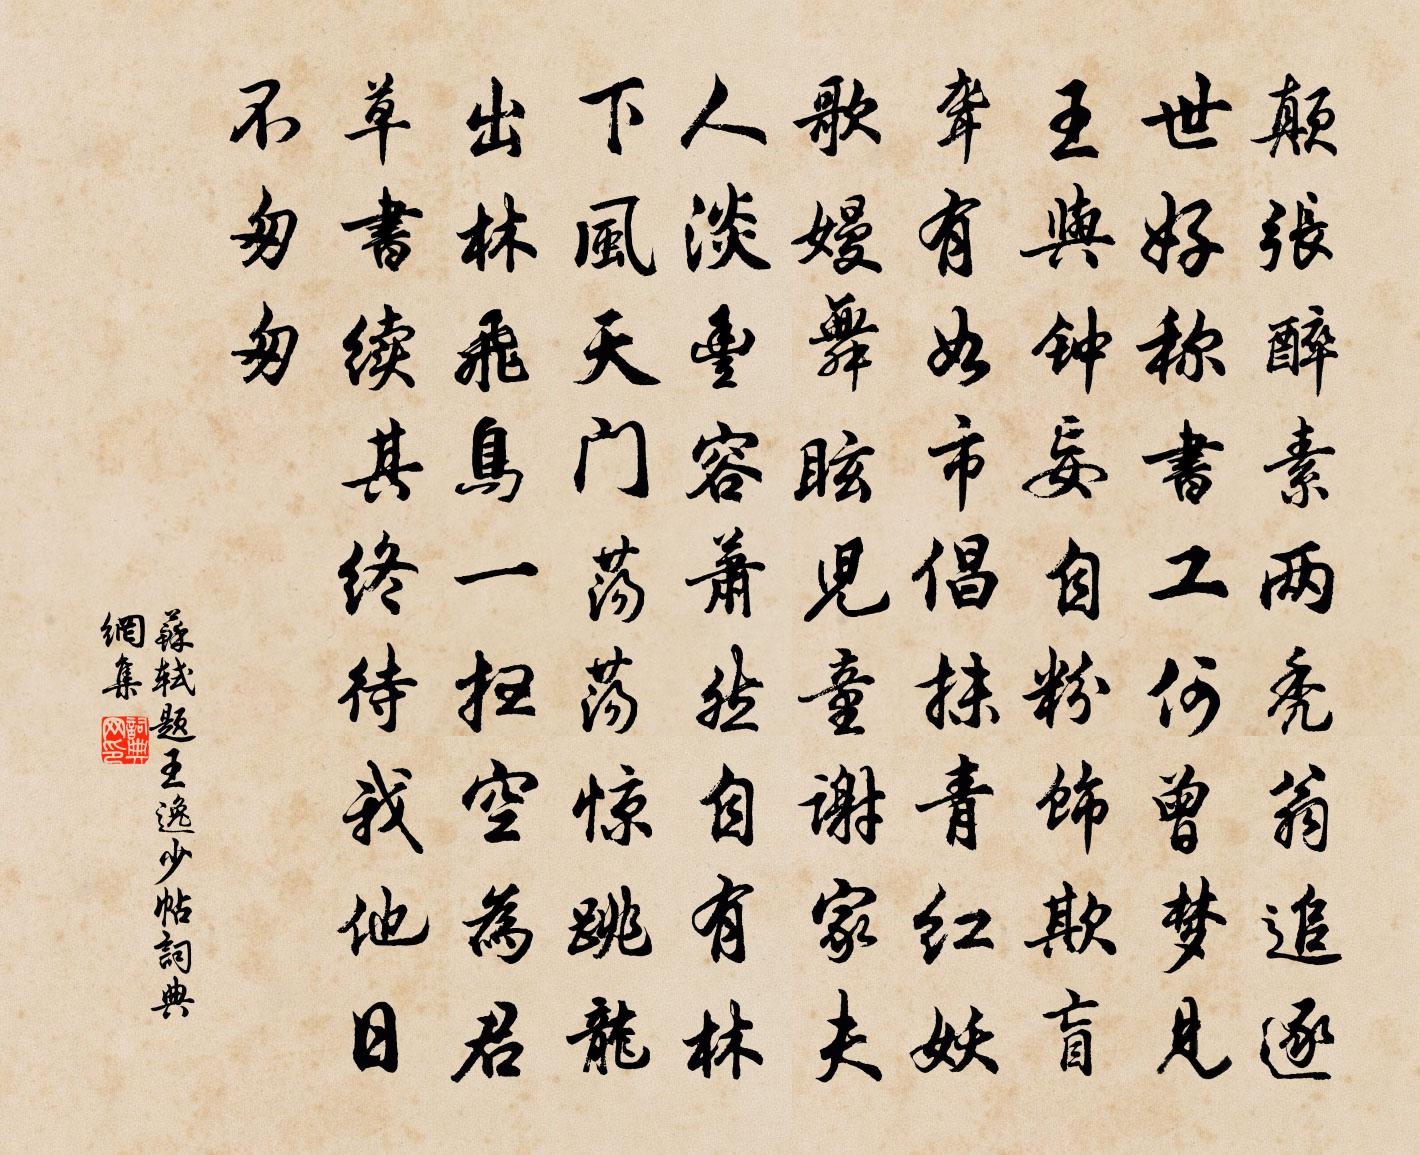 颠張醉素两秃翁追逐
世好称書工何曾梦見
王與钟妄自粉饰欺盲
聋有如市倡抹青红妖
歌嫚舞眩児童謝家夫
人淡豊容萧然自有林
下風天门荡荡惊跳龍
出林飛鳥一扫空為君
草書续其终待我他日
不匆匆
蘇轼题王逸少帖詞典
網集
詞典网印